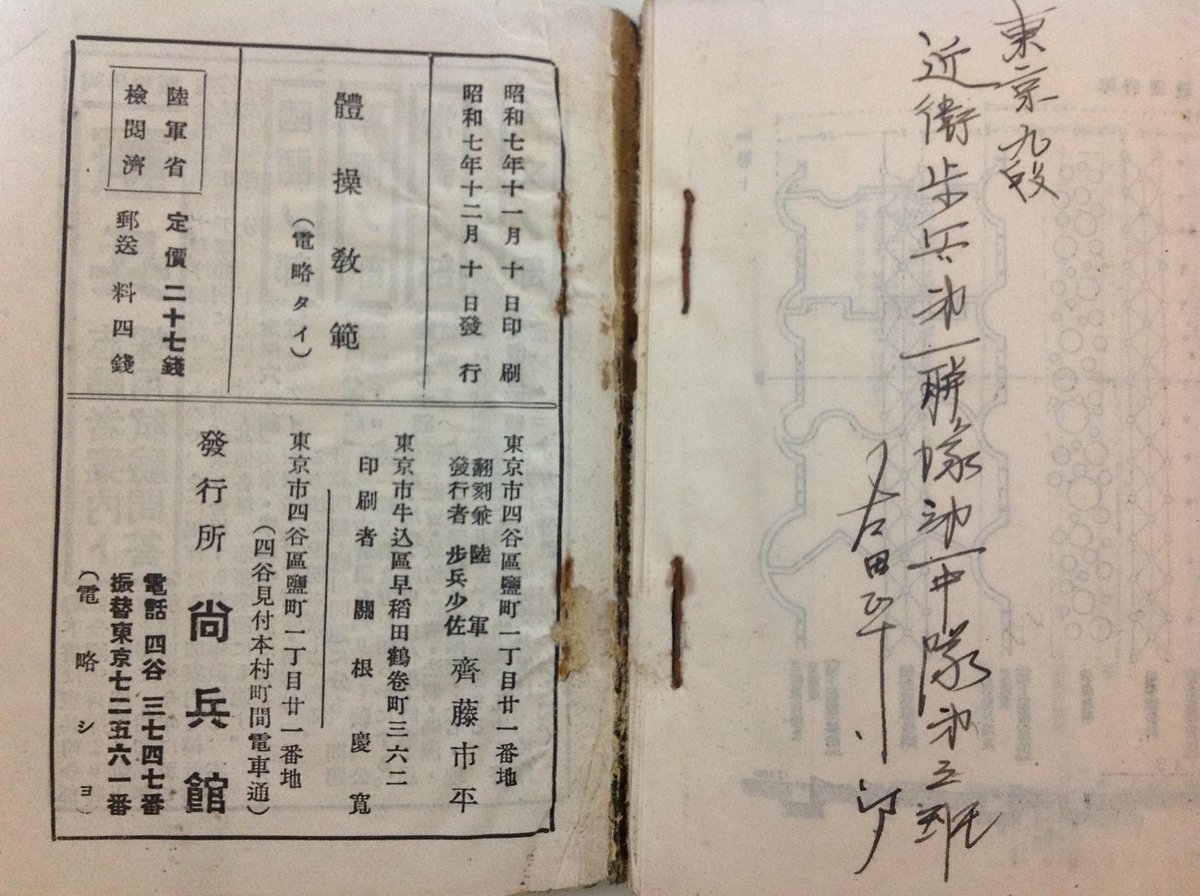 東京九段
近衛歩兵第一聯隊第一中隊第三班
昭和七年十一月十日印刷
昭和七年十二月十日發行
體操教範
(電略タイ)
陸軍省
檢閲濟
定價二十七錢
郵送料四錢
東京市四谷區鹽町一丁目廿一番地
翻刻兼發行者 陸軍步兵少佐 齊藤市平
東京市牛込區早稻田鶴卷町三六二
印刷者 關根慶寬
東京市四谷區鹽町一丁目廿一番地
(四谷見付本村町間電車通)
發行所 尙兵館
電話四谷三七四七番
振替東京七二五六一番
(電略ショ)